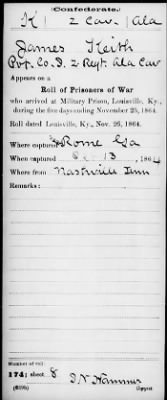 Confederate.
K 2 Cav. Ala
James Keith
Pvt. Co. D. 2 Regt. Ala Cav
Appears on a
Roll of Prisoners of War
who arrived at Military Prison, Louisville, Ky.,
during the five days ending November 25, 1864.
Roll dated Louisville, Ky., Nov. 26, 1864.
Where captured Rome Ga
When captured Oc 13, 1864
Where from Nashville Tenn
Remarks:
Number of roll:
174; sheet 8
Copyist.